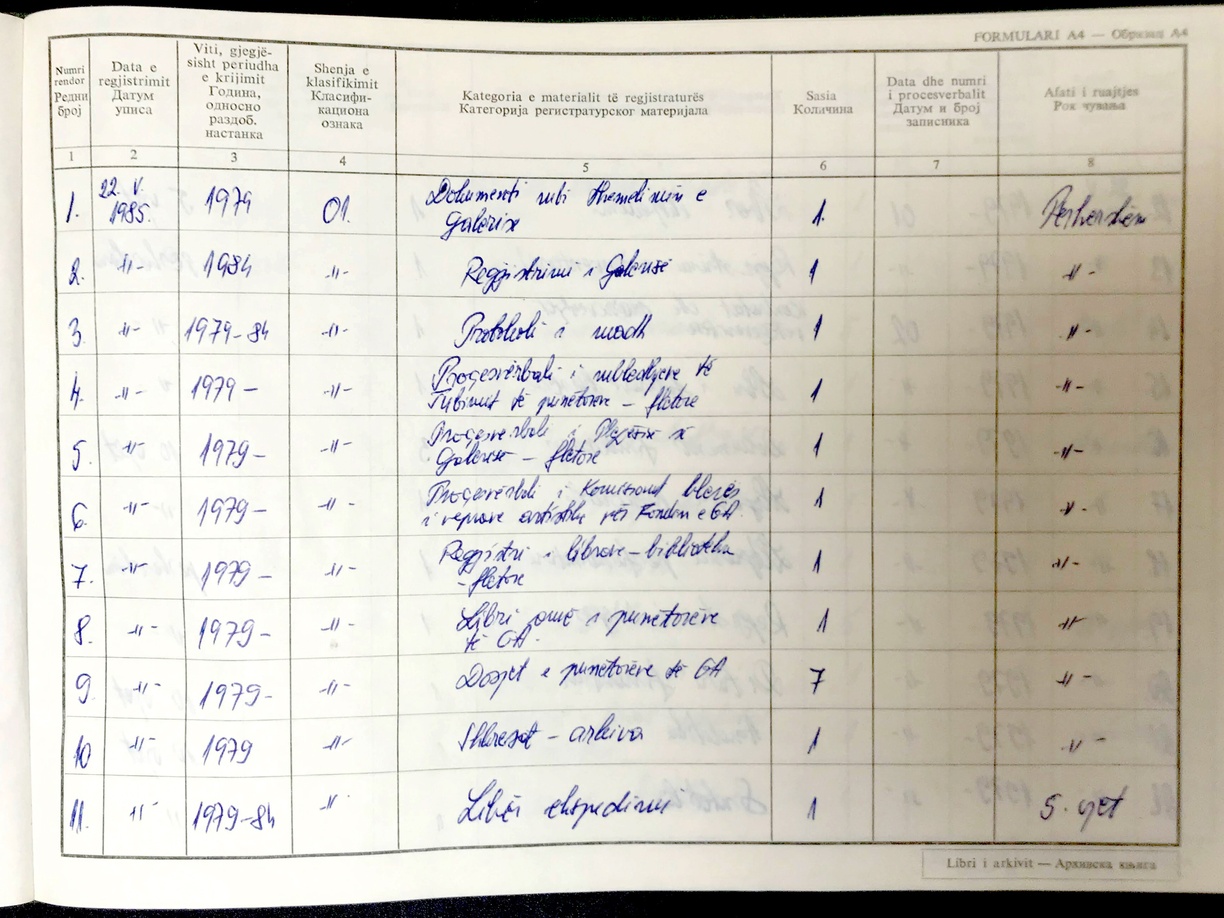 FORMULARI A4 — Образац А4
Numri
rendor
Редни
број
Data e
regjistrimit
Датум
уписа
Viti, gjegjë-
sisht periudha
e krijimit
Година,
односно
раздоб.
настанка
Shenja e
klasifikimit
Класифи-
кациона
ознака
Kategoria e materialit të regjistraturës
Категорија регистратурског материјала
Sasia
Количина
Data dhe numri
i procesverbalit
Датум и број
записника
Afati i ruajtjes
Рок чувања
1 2 3 4 5 6 7 8
1. 22. V. 1979 01. Dokumenti mbi themelimin e 1.
1985. Galerisë
2. -"- 1984 -"- Regjistrimi i Galerisë 1 -"-
3. -"- 1979-84 -"- Protokoli i madh 1 -"-
4. -"- 1979- -"- Proçesverbali i mbledhjeve të 1 -"-
Tubimit të punëtorëve - fletore
5. -"- 1979- -"- Proçesverbali i 1 -"-
Galerisë - fletore
6. -"- 1979- -"- Proçesverbali i Komisionit blerës 1 -"-
i veprave artistike për Fondin e GA.
7. -"- 1979- -"- Regjistri i librave - biblioteka 1 -"-
- fletore
8. -"- 1979- -"- Libri amë i punëtorëve 1 -"-
të GA.
9. -"- 1979- -"- Dosjet e punëtorëve të GA 7 -"-
10 -"- 1979 -"- Shkresat - arkiva 1 -"-
11. -"- 1979-84 -"- Libri ekspedimi 1 5. vjet
Libri i arkivit — Архивска књига